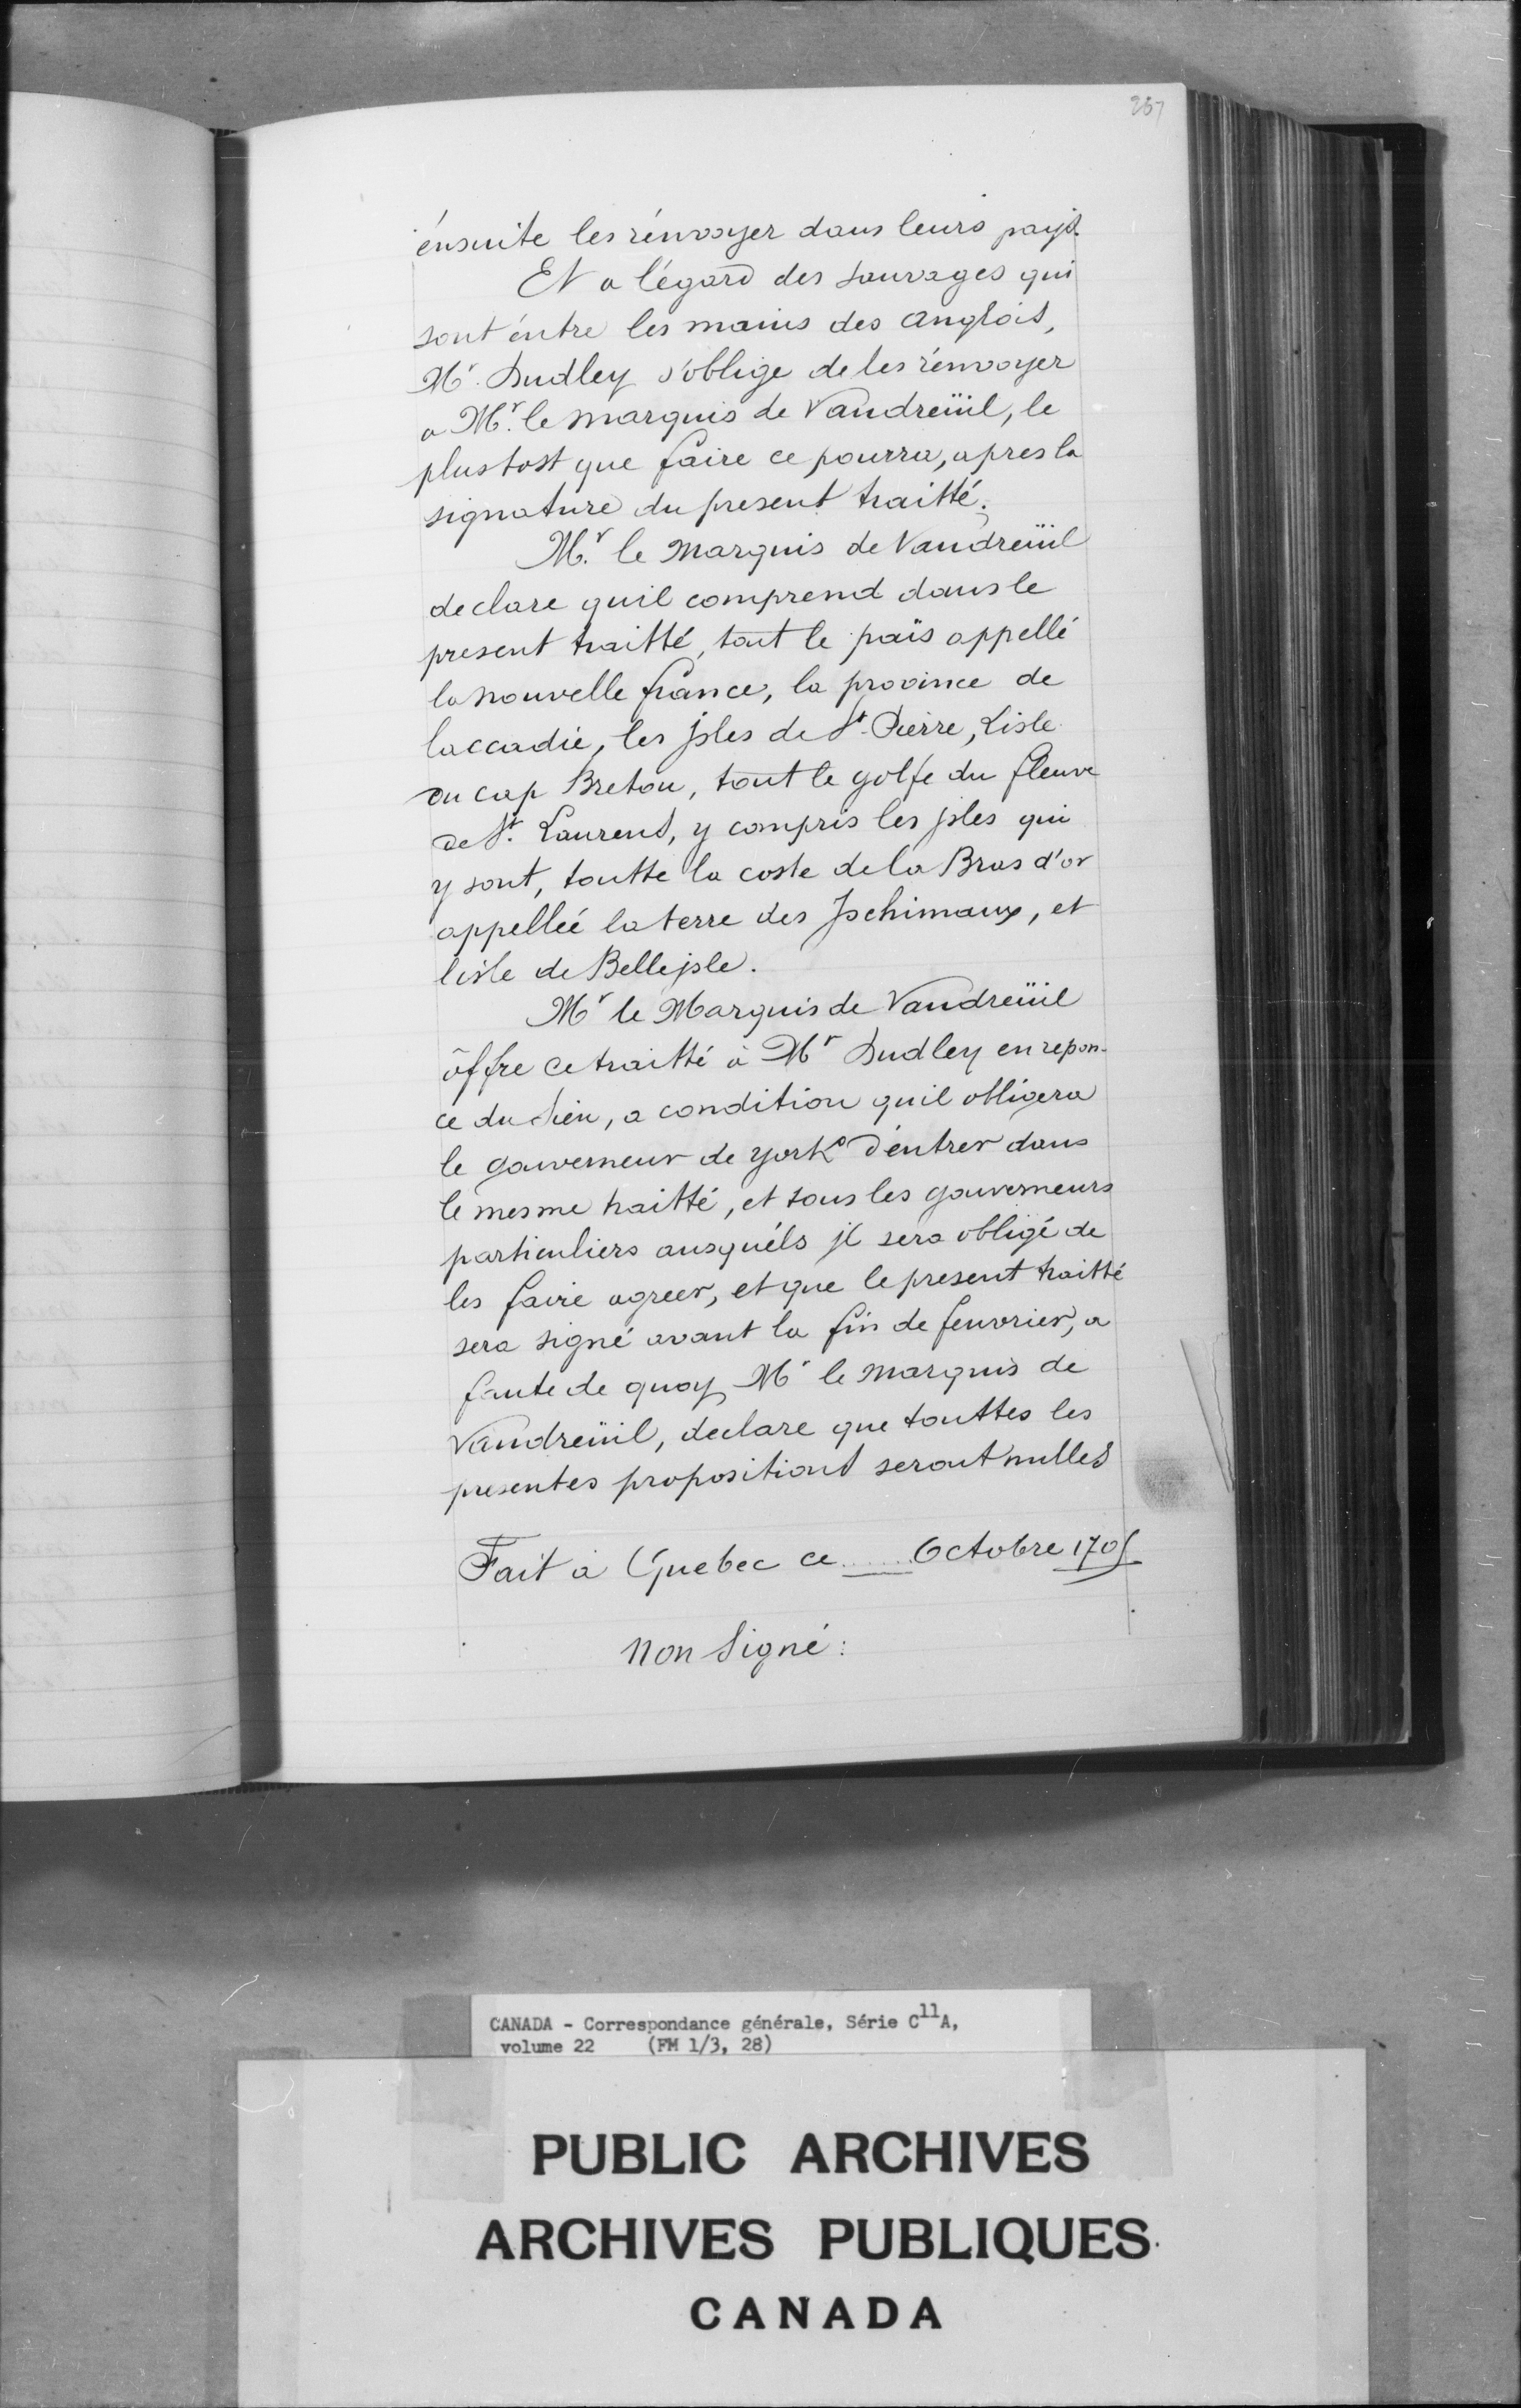 267
énsuite les rénvoyer dans leurs pays.
Et a l'égard des sauvages qui
sont éntre les mains des anglois,
Mr. Dudley s'oblige de les rénvoyer
a Mr. le marquis de Vaudreüil, le
plus tost que faire ce pourra, apres la
signature du present traitté.
Mr. le Marquis de Vaudreüil
declare quil comprend dans le
present traitté, tout le païs appellé
la nouvelle france, la province de
laccadie, les jsles de St. Pierre, Lisle
du cap Breton, tout le golfe du fleuve
de St. Laurens, y compris les jsles qui
y sont, toutte la coste de la Bras d'or
appellée la terre des Jschimaux, et
lisle de Bellejsle.
Mr le Marquis de Vaudreüil
ôffre ce traitté à Mr Dudley en repon-
ce du sien, a condition quil obligera
le gouverneur de york d'entrer dans
le mesme traitté, et tous les gouverneurs
particuliers ausquéls jl sera obligé de
les faire agreer, et que le present traitté
sera signé avant la fin de feuvrier, a
faute de quoy Mr le Marquis de
Vaudreüil, declare que touttes les
presentes propositions seront nulles
Fait a Quebec ce ...... Octobre 1705
Non Signé:
CANADA - Correspondance générale, Série C11A,
volume 22 (FM 1/3, 28)
PUBLIC ARCHIVES
ARCHIVES PUBLIQUES
CANADA